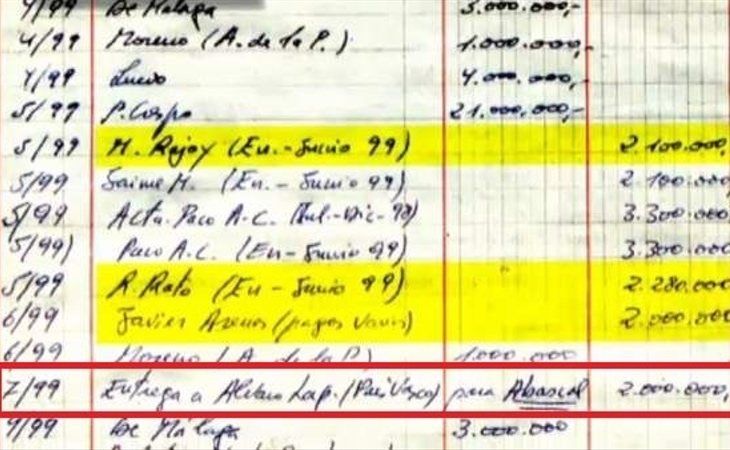 4/99 De Málaga 3.000.000,-
4/99 Moreno (A. de la P.) 1.000.000,-
4/99 Lucio 4.000.000,-
5/99 P. Crespo 21.000.000,-
5/99 M. Rajoy (En.- Junio 99) 2.100.000,
5/99 Jaime M. (En.- Junio 99) 2.100.000,
5/99 Acta. Paco A-C. (Jul.-Dic-98) 3.300.000,
5/99) Paco A.C. (En-Junio 99) 3.300.000,
5/99 R. Rato (En-Junio 99) 2.280.000,
6/99 Javier Arenas (pagos varios) 2.000.000,
6/99 Moreno (A. de la P) 1.000.000
7/99 Entrega a Alvaro Lap. (País Vasco) para Abascal 2.000.000,
9/99 De Málaga 3.000.000